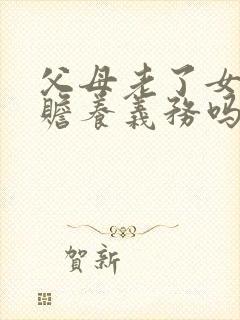 父母老了女
赡养義務吗
賀新